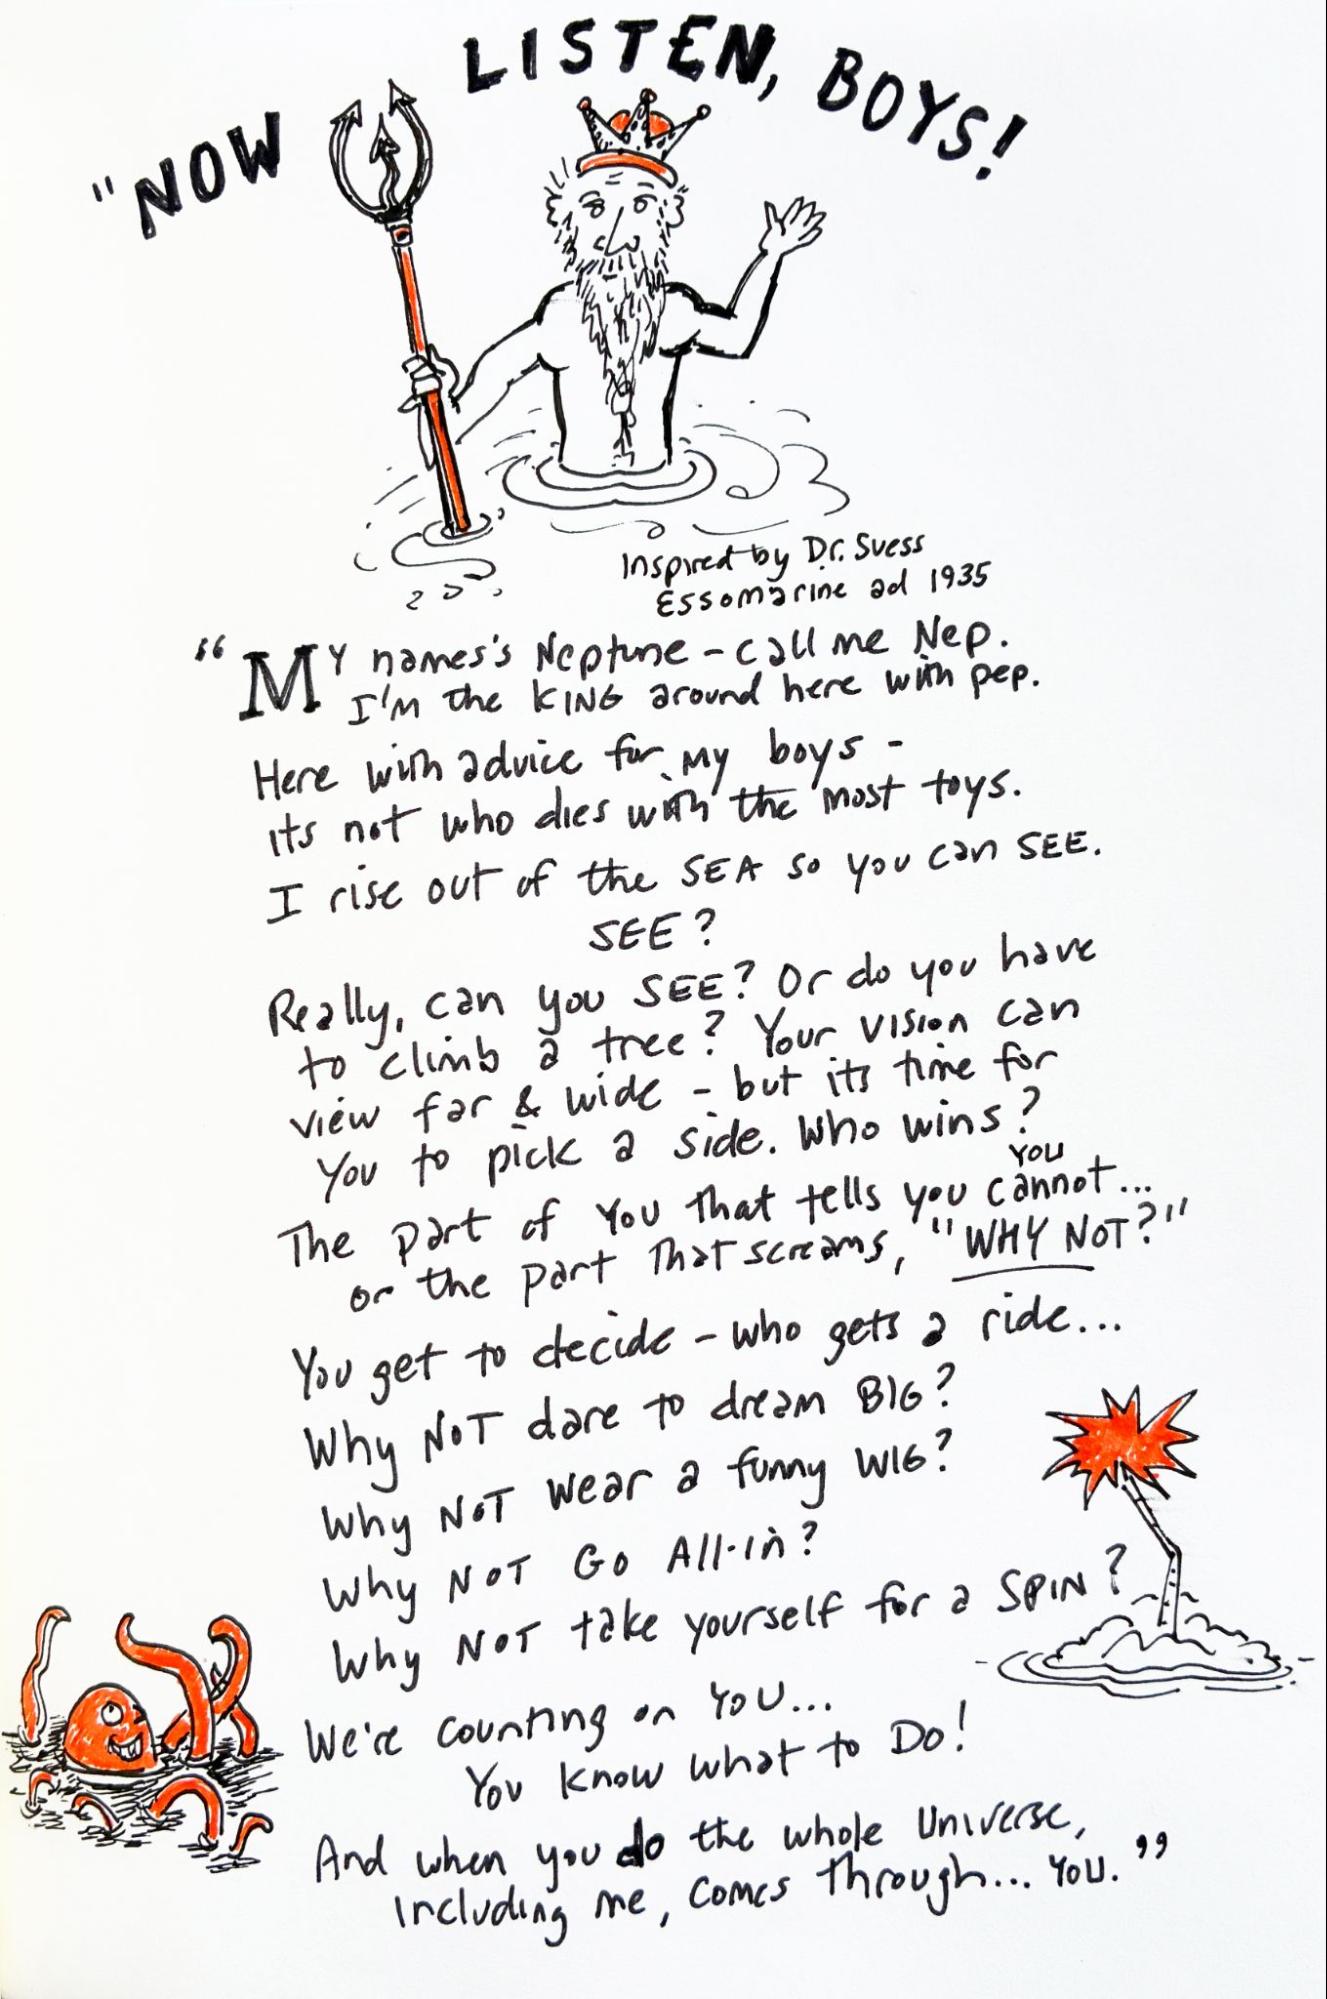 "NOW LISTEN, BOYS!
Inspired by Dr. Suess
Essomarine ad 1935
"MY names's Neptune - call me Nep.
I'm the KING around here with pep.
Here with advice for my boys -
its not who dies with the most toys.
I rise out of the SEA so you can SEE.
SEE?
Really, can you SEE? Or do you have
to climb a tree? Your vision can
view far & wide - but its time for
you to pick a side. Who wins?
The part of you that tells you YOU cannot...
or the part that screams, "WHY NOT?"
You get to decide - who gets a ride...
Why NOT dare to dream BIG?
Why NOT wear a funny WIG?
Why NOT Go All-in?
Why NOT take yourself for a SPIN?
We're counting on YOU...
You know what to Do!
And when you do the whole Universe,
including me, comes through... YOU."